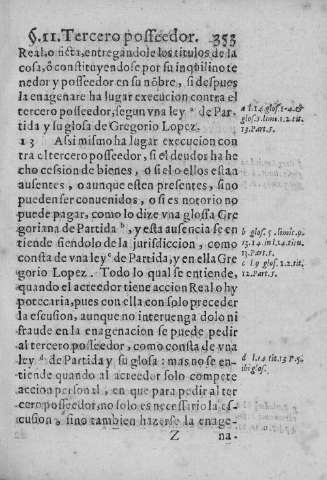 §.11. Tercero possèedor. 353
Real, o ficta, entregandole los titulos de la
cosa, ò constituyendose por su inquilino te
nedor y posseedor en su nõbre, si despues
la enagenare ha lugar execucion contra el
tercero posseedor, segun vna ley a de Par-
tida y su glosa de Gregorio Lopez.
13 Assi mismo ha lugar execucion con
tra el tercero posseedor, si el deudos ha he
cho cession de bienes, o si el o ellos estan
ausentes, o aunque esten presentes, sino
pueden ser conuenidos, o si es notorio no
puede pagar, como lo dize vna glossa Gre
goriana de Partida b, y esta ausencia se en
tiende siendolo de la jurisdiccion, como
consta de vna ley c de Partida, y en ella Gre
gorio Lopez. Todo lo qual se entiende,
quando el acreedor tiene accion Real o hy
potecaria, pues con ella con solo preceder
la escusion, aunque no interuenga dolo ni
fraude en la enagenacion se puede pedir
al tercero posseedor, como consta de vna
ley d de Partida y su glosa: mas no se en-
tiende quando al acreedor solo compete
accion personal, en que para pedir al ter
cero posseedor, no solo es necessario la es-
cusion, sino tambien hazerse la enage-
Z na-
a l. 14. glos. 1-4. et
glos. 5. limi. 1. 2. tit.
13. Part. 5.
b glos. 5. limit. 9.
13. 14. in l. 14. titu.
13. Part. 5.
c l. 9 glos. 2. 2. tit.
12. Part. 5.
d l. 14 tit. 13 P. 5.
ibi glos.